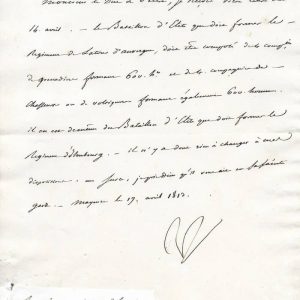 Monsieur le duc de Valmy, je reçois votre lettre du
14 avril. — Le Bataillon d'Elite que doit former le
Régiment de Latour d'auvergne, doit être composé de 4 compies
de grenadiers formant 600 hes et de 4 compagnies de
Chasseurs ou de voltigeurs formant également 600 hommes.
il en est de même du Bataillon d'Elite que doit former le
Régiment d'Isembourg. — il n'y a donc rien à changer à cet
dispositions. Sur ce, je prie dieu qu'il vous ait en sa Sainte
garde. — mayence le 17. avril 1813.